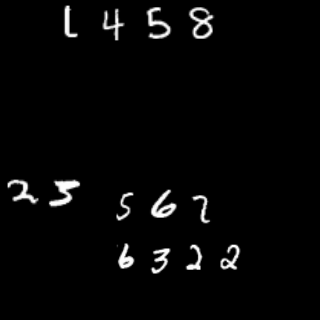 1458
25
567
6322